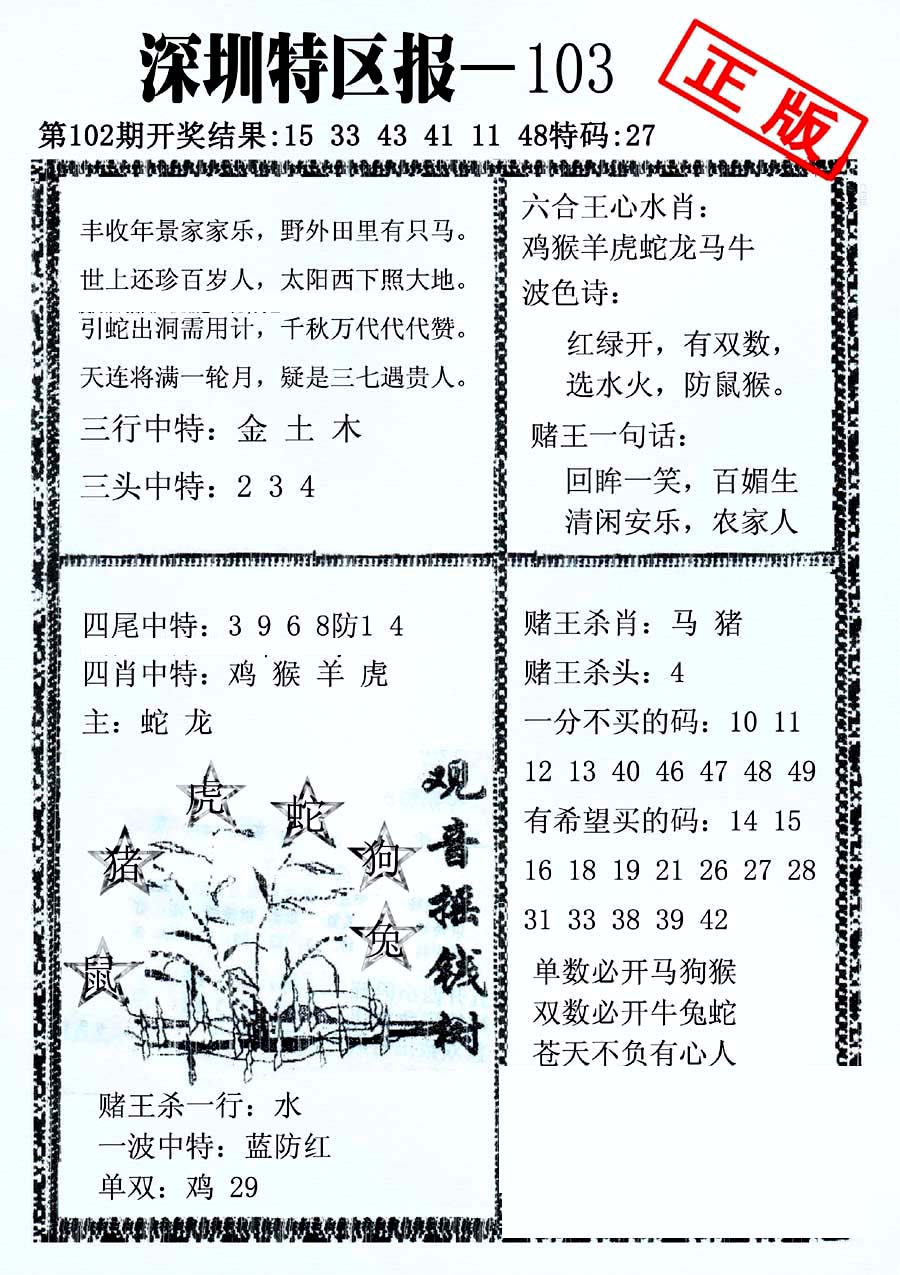 深圳特区报—103
正版
第102期开奖结果:15 33 43 41 11 48特码:27
丰收年景家家乐，野外田里有只马。
世上还珍百岁人，太阳西下照大地。
引蛇出洞需用计，千秋万代代代赞。
天连将满一轮月，疑是三七遇贵人。
三行中特：金 土 木
三头中特：2 3 4
六合王心水肖：
鸡猴羊虎蛇龙马牛
波色诗：
红绿开，有双数，
选水火，防鼠猴。
赌王一句话：
回眸一笑，百媚生
清闲安乐，农家人
四尾中特：3 9 6 8防1 4
四肖中特：鸡 猴 羊 虎
主：蛇 龙
虎
蛇
猪
狗
兔
鼠
观音摇钱树
赌王杀一行：水
一波中特：蓝防红
单双：鸡 29
赌王杀肖：马 猪
赌王杀头：4
一分不买的码：10 11
12 13 40 46 47 48 49
有希望买的码：14 15
16 18 19 21 26 27 28
31 33 38 39 42
单数必开马狗猴
双数必开牛兔蛇
苍天不负有心人